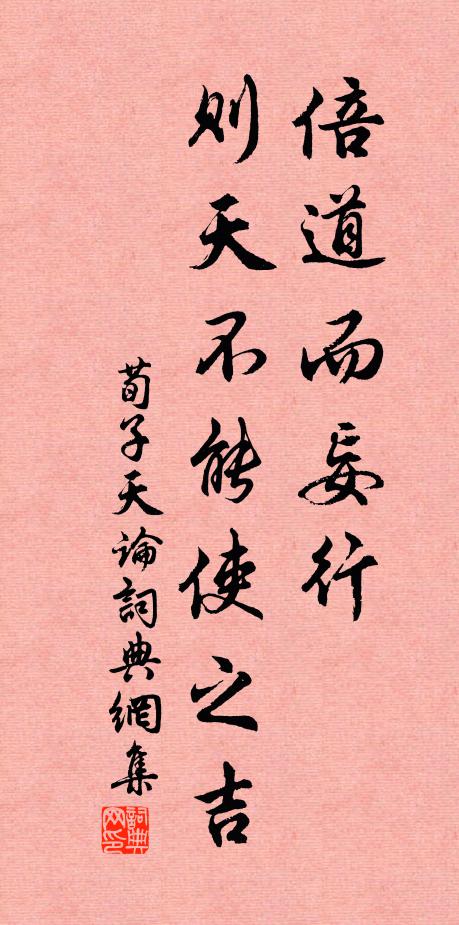 倍道而妄行
則天不能使之吉
荀子天論詞典網集
詞典网印